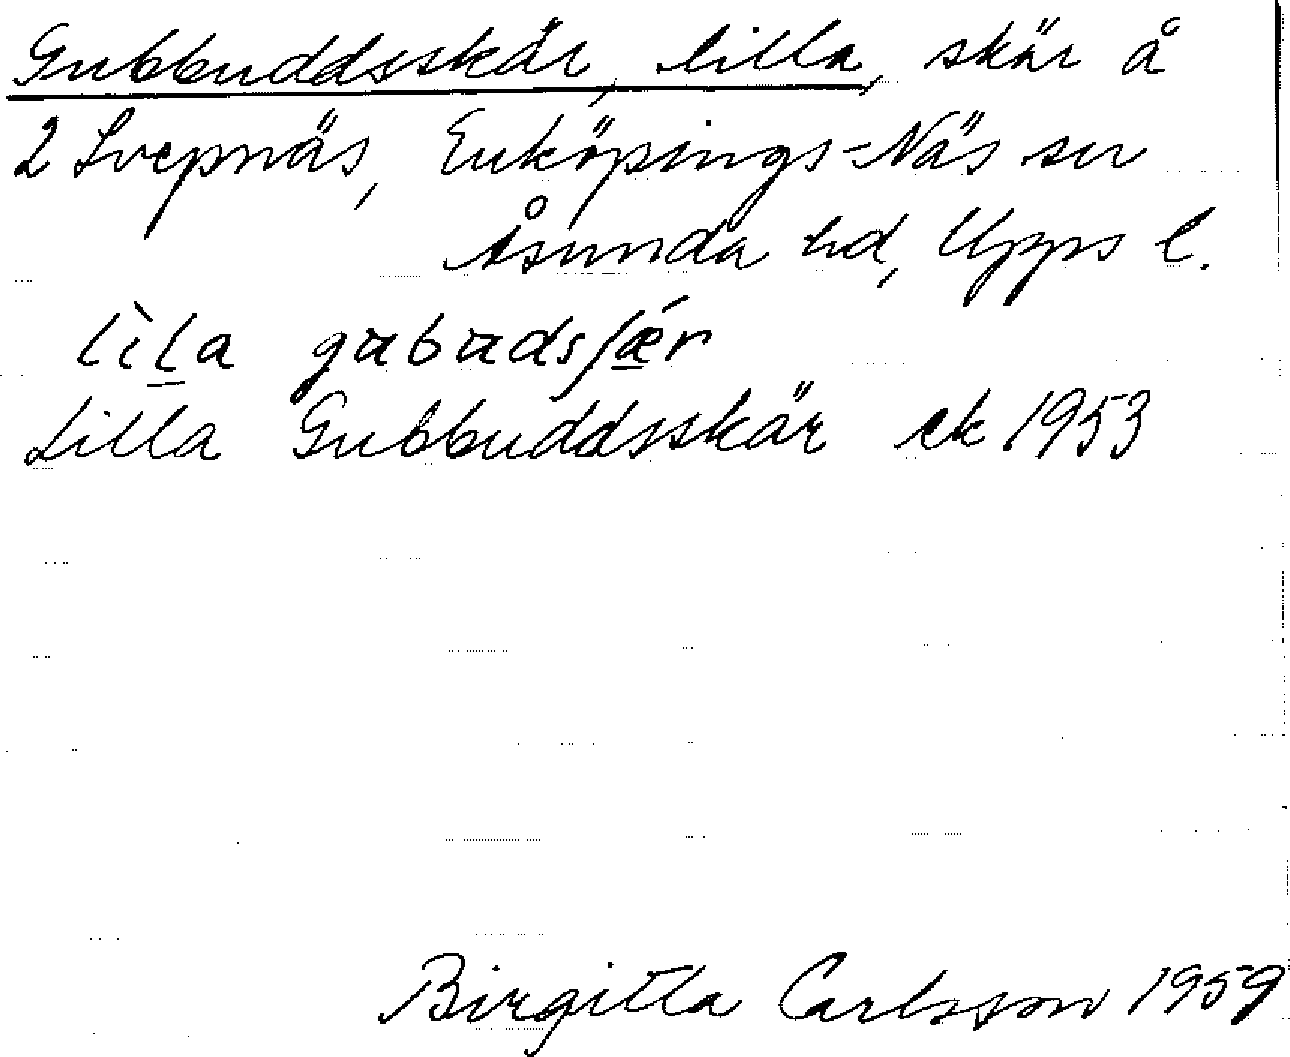 Gubbuddsskär, lilla, skär å
2 Svepnäs, Enköpings-Näs sn
Åsunda hd, Upps l.
lìla gubudsʃǽr
Lilla Gubbuddsskär ek 1953
Birgitta Carlsson 1959